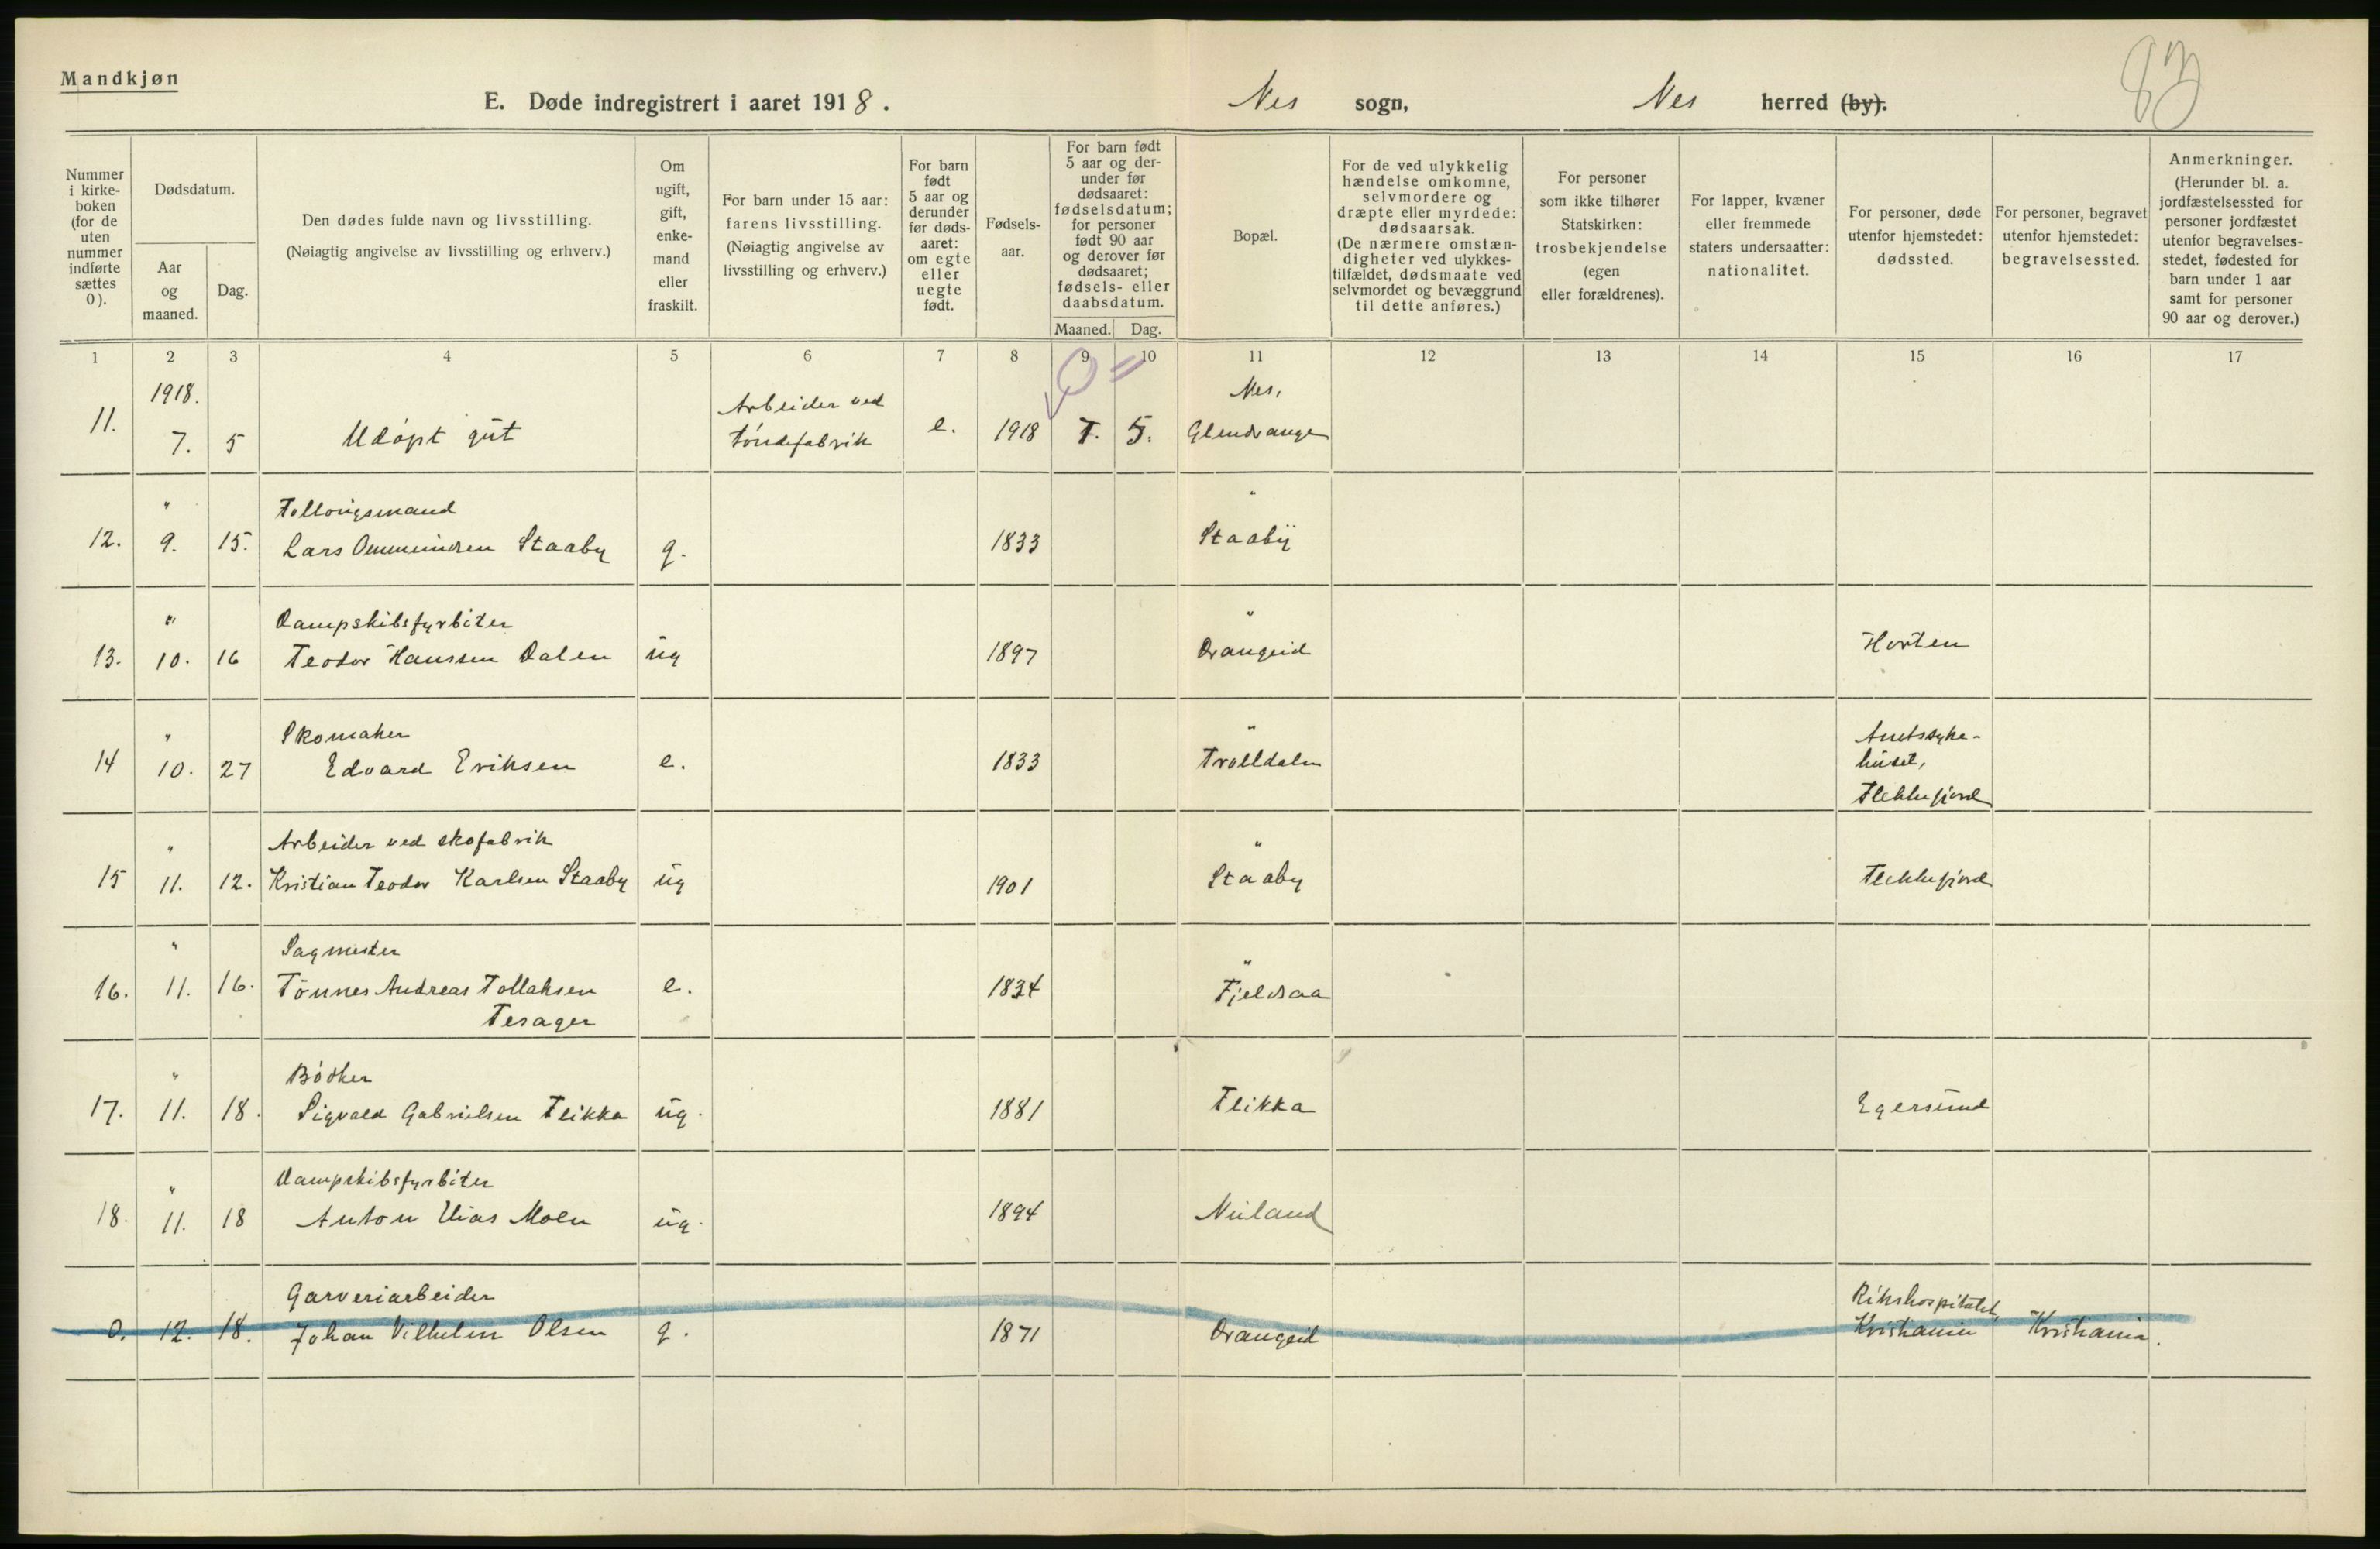 Mandkjøn
83
E. Døde indregistrert i aaret 1918.
Nes sogn, Nes herred (by).
Nummer i kirke-boken (for de uten nummer indførte sættes 0).
Dødsdatum.
Aar og maaned.
Dag.
Den dødes fulde navn og livsstilling.
(Nøiagtig angivelse av livsstilling og erhverv.)
Om ugift, gift, enke-mand eller fraskilt.
For barn under 15 aar: farens livsstilling.
(Nøiagtig angivelse av livsstilling og erhverv.)
For barn født 5 aar og derunder før døds-aaret: om egte eller uegte født.
Fødsels-aar.
For barn født 5 aar og der-under før dødsaaret: fødselsdatum; for personer født 90 aar og derover før dødsaaret; fødsels- eller daabsdatum.
Maaned. Dag.
Bopæl.
For de ved ulykkelig hændelse omkomne, selvmordere og dræpte eller myrdede: dødsaarsak.
(De nærmere omstæn-digheter ved ulykkes-tilfældet, dødsmaate ved selvmordet og bevæggrund til dette anføres.)
For personer som ikke tilhører Statskirken: trosbekjendelse (egen eller forældrenes).
For lapper, kvæner eller fremmede staters undersaatter: nationalitet.
For personer, døde utenfor hjemstedet: dødssted.
For personer, begravet utenfor hjemstedet: begravelsessted.
Anmerkninger.
(Herunder bl. a. jordfæstelsessted for personer jordfæstet utenfor begravelses-stedet, fødested for barn under 1 aar samt for personer 90 aar og derover.)
1 2 3 4 5 6 7 8 9 10 11 12 13 14 15 16 17
1918. Arbeider ved Nes,
11. 7. 5 Udøpt gut tøndefabrik e. 1918 7. 5. Glendrange
" Tollovigsmand "
12. 9. 15. Lars Ommundsen Staaby g. 1833 Staaby
" Dampskibsfyrbøter "
13. 10. 16 Teodor Hanssen Dalen ug 1897 Drangeid Horten
" Skomaker " Amtssyke-
14 10. 27 Edvard Eriksen e. 1833 Trolldalen huset,
Flekkefjord
" Arbeider ved skofabrik "
15 11. 12. Kristian Teodor Karlsen Staaby ug 1901 Staaby Flekkefjord
" Sagmester "
16. 11. 16. Tönnes Andreas Tollaksen e. 1834 Fjeldsaa
Tesager
" Bödker
17. 11. 18. Sigvald Gabrielsen Flikka ug. 1881 Flikka Egersund
" Dampskibsfyrböter
18. 11. 18 Anton Elias Moen ug. 1894 Nuland
Garveriarbeider Rikshospitalet,
0. 12. 18. Johan Vilhelm Olsen g. 1871 Drangeid Kristiania Kristiania.